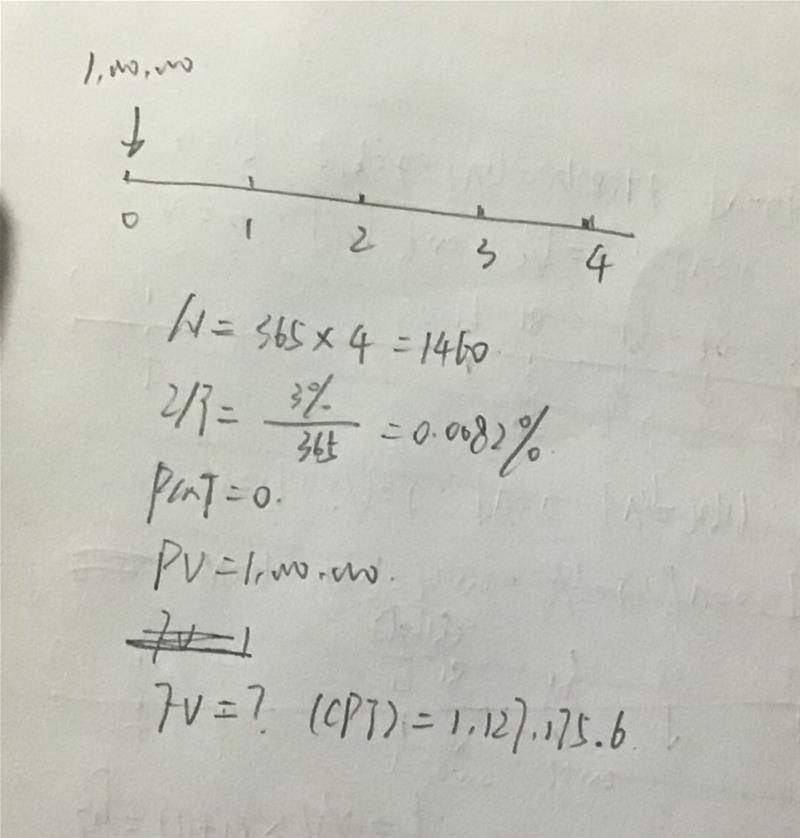 1,000,000
0 1 2 3 4
N = 365 × 4 = 1460.
I/Y = 3% / 365 = 0.0082%
PMT = 0.
PV = 1,000,000.
FV = 1
FV = ? (CPT) = 1,127,175.6